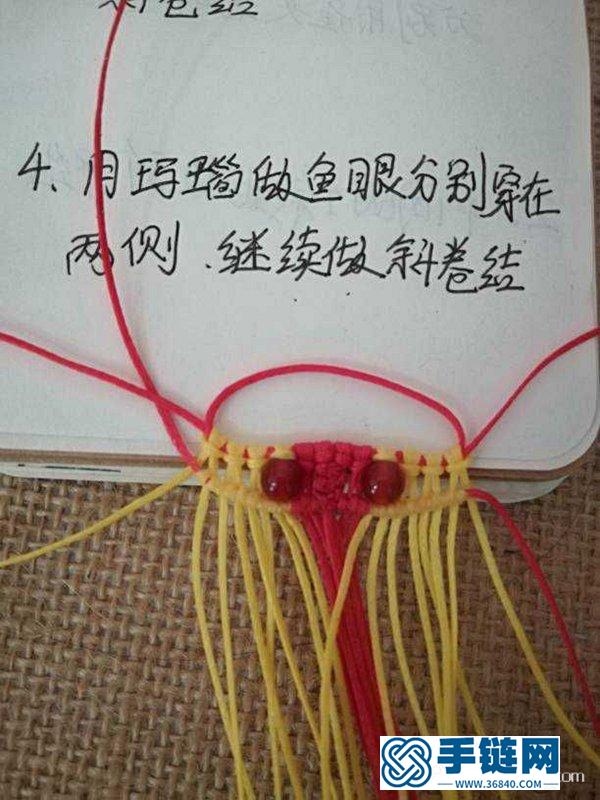 斜卷结
4、用玛瑙做鱼眼分别穿在
两侧.继续做斜卷结
手链网
www.36840.com